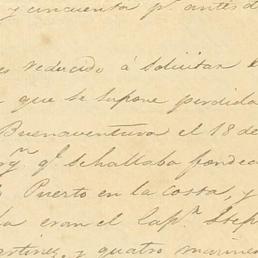 y cincuenta p.r antes d
es reducido á solicitar e
que se supone perdida
Buenaventura el 18 de
q.e se hallaba fondea
Puerto en la costa, y
eran el Cap.n Step
artinez, y cuatro marine